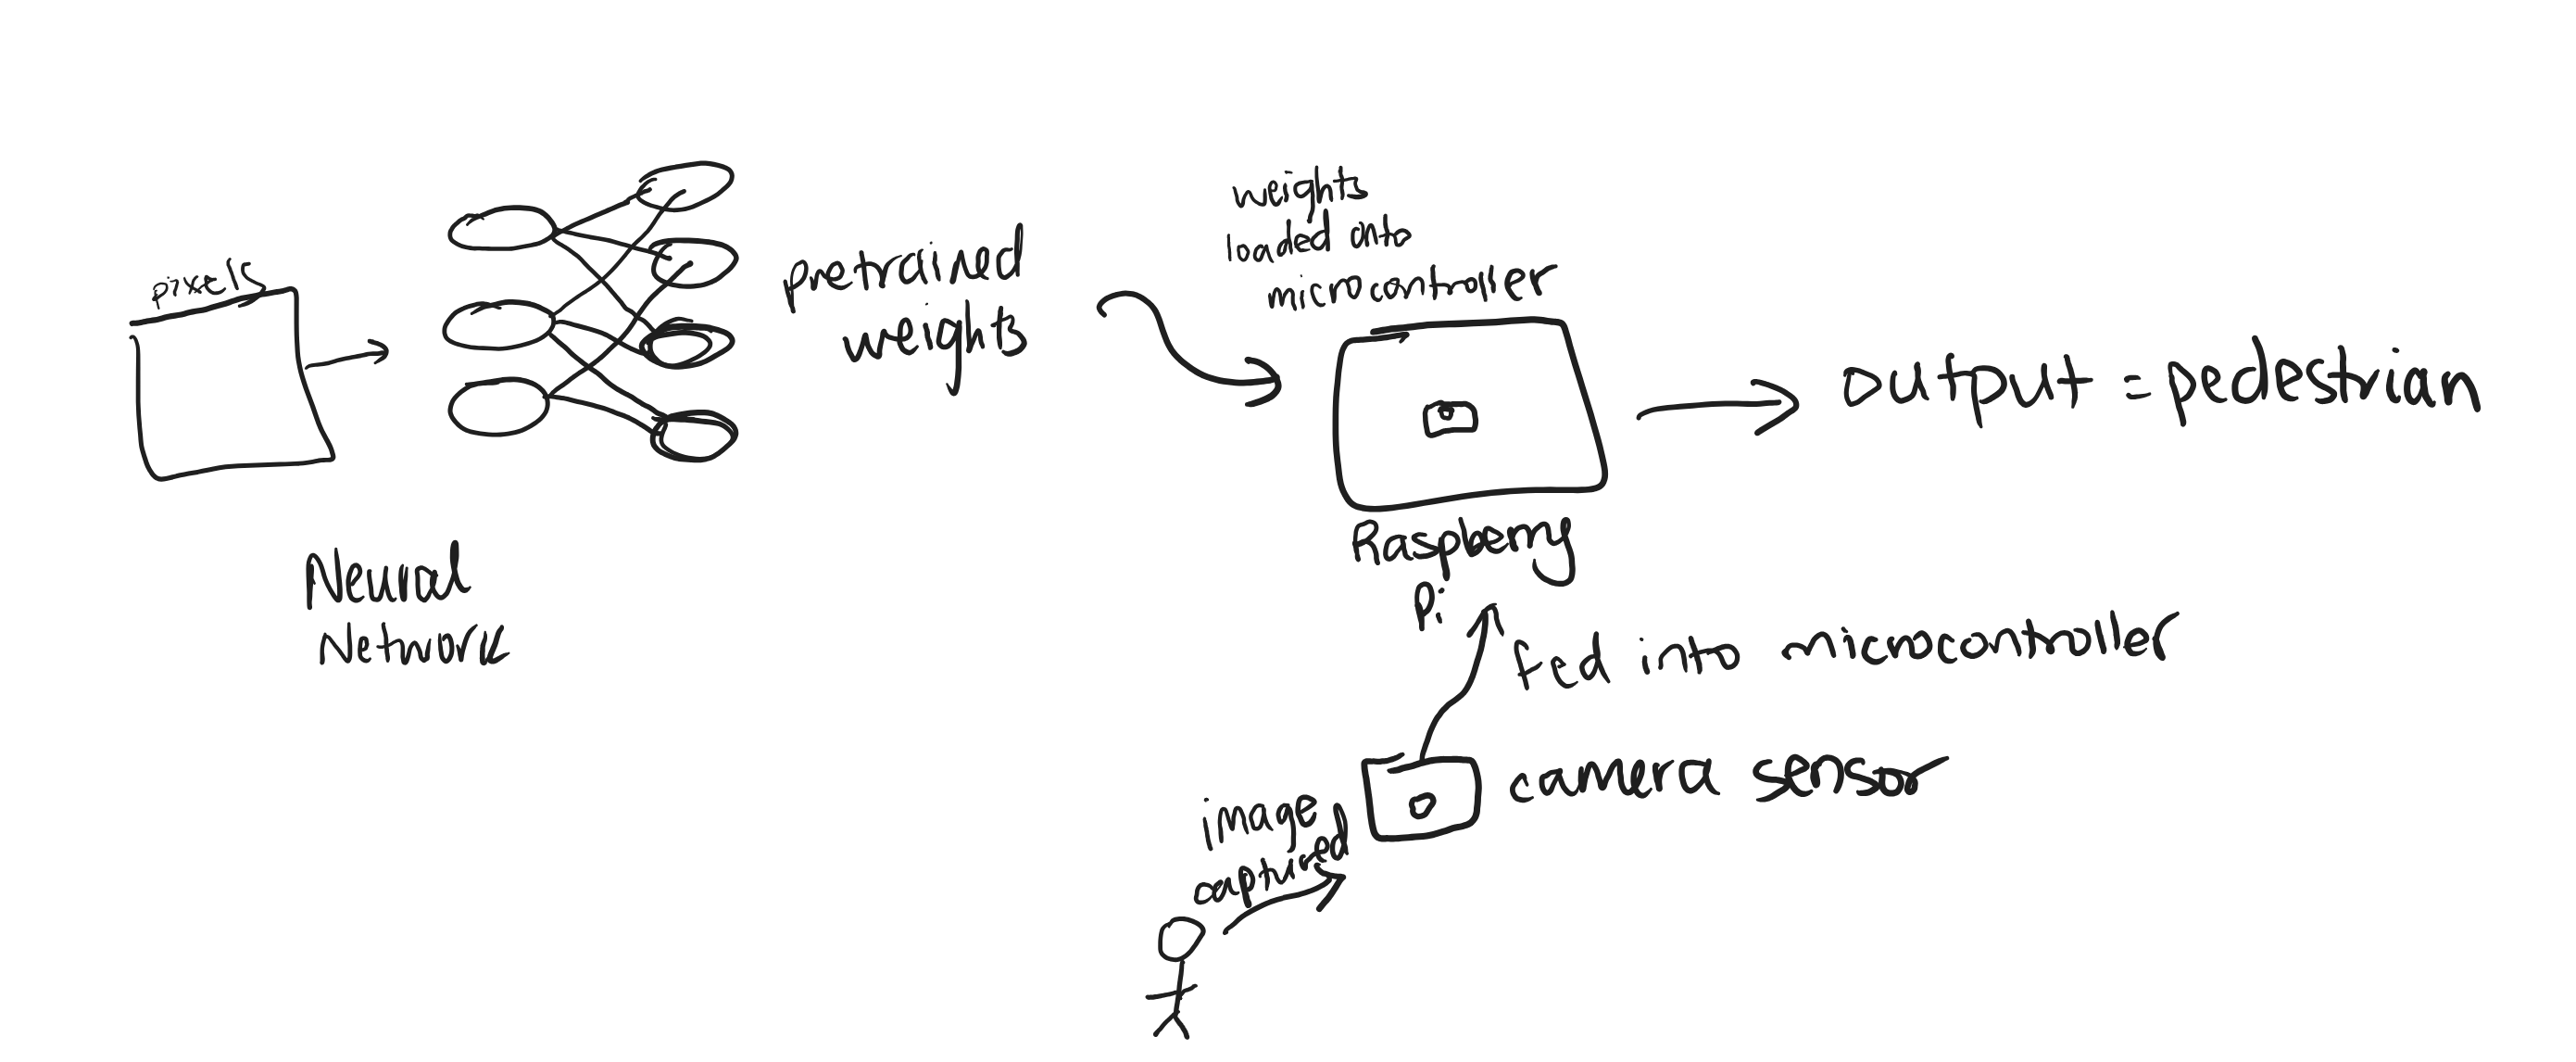 pixels
Neural
Network
pretrained
weights
weights
loaded onto
microcontroller
Raspberry
Pi
output = pedestrian
fed into microcontroller
camera sensor
image
captured